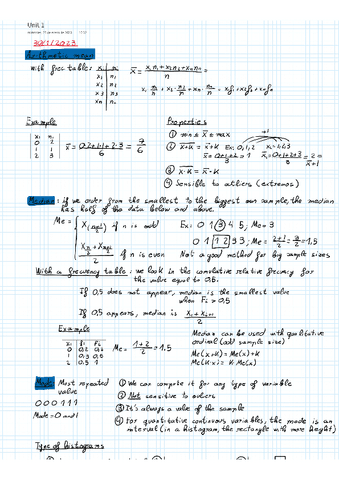 Unit 1
30/1/2023
Arithmetic mean
With freq tables
xi ni
x1 n1
x2 n2
x3 n3
xn nn
x̄ = (x1 n1 + x2 n2 + xn nn) / n =
Example
xi ni
0 2
1 1
2 3
x̄ = (0·2+1·1+2·3) / 6 = 7/6
Properties
① min ≤ x̄ ≤ max
② x̄+K = x̄+K Ex: 0,1,2
③ x̄·K = x̄·K
④ Sensible to outliers (extremos)
Median: if we order from the smallest to the biggest our sample, the median
has half of the data below and above.
Me = X(n+1)/2 if n is odd Ex: 0 1 3 4 5; Me=3
if n is even 0 1 1 2 3 3; Me = (2+1)/2 = 3/2 = 1,5
Not a good method for big sample sizes
With a frequency table: we look in the cumulative relative frequency for
the value equal to 0,5.
If 0,5 does not appear, median is the smallest value
when Fi > 0,5
If 0,5 appears, median is (xi + xi+1)/2
Example
xi fi Fi
0 0,2 0,2
1 0,3 0,5
2 0,5 1
Me = (1+2)/2 = 1,5
Median can be used with qualitative
ordinal (odd sample size)
Me(x+K) = Me(x)+K
Me(K·x) = K·Me(x)
Mode: Most repeated
value
0 0 0 1 1 1
Mode = 0 and 1
① We can compute it for any type of variable
② Not sensitive to outliers
③ It's always a value of the sample
④ For quantitative continuous variables, the mode is an
interval (in a histogram, the rectangle with more height)
Type of histograms